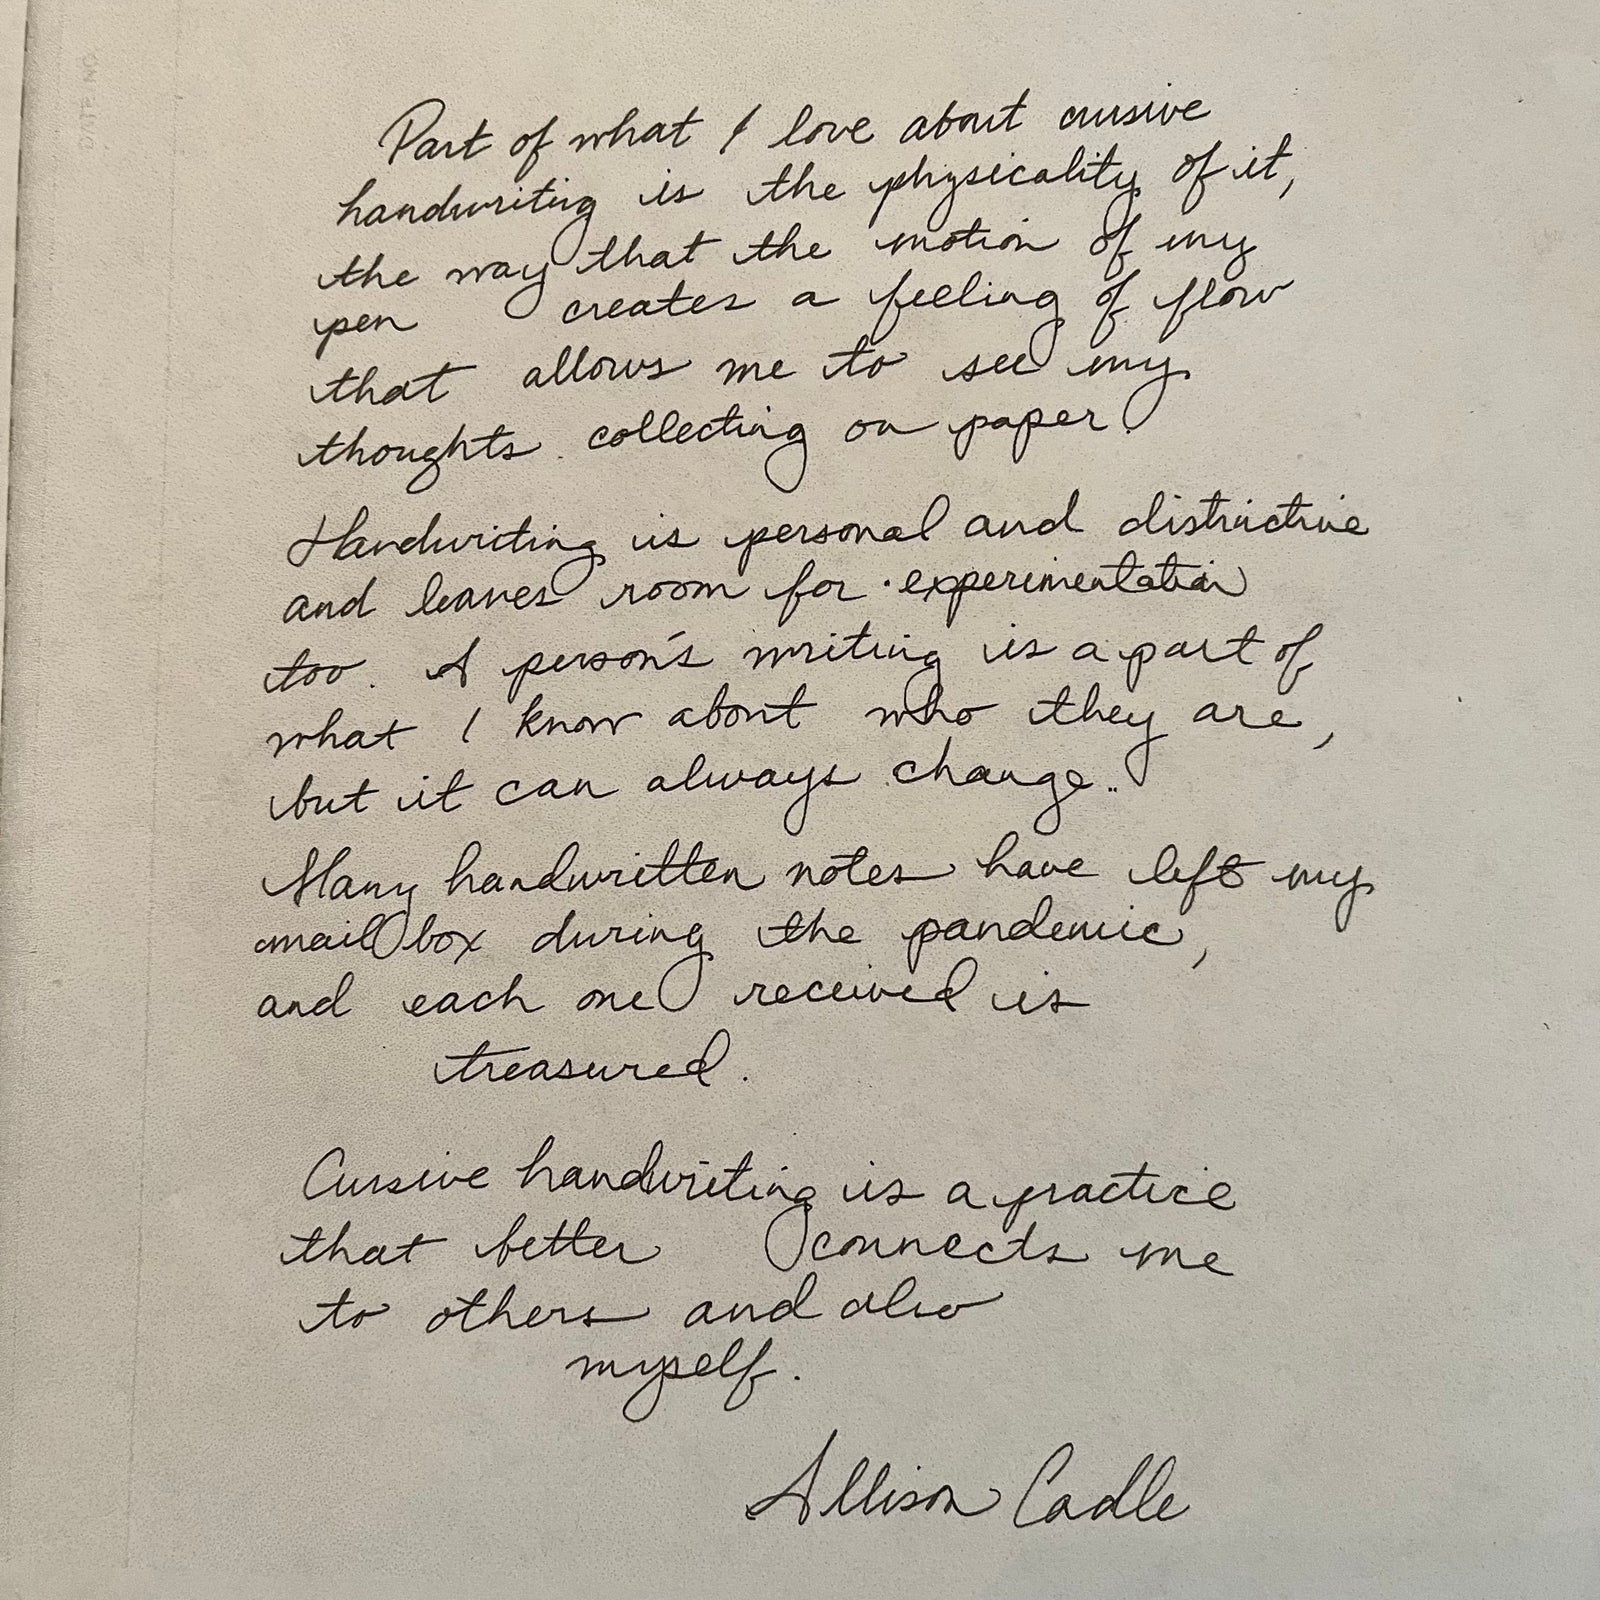 Part of what I love about cursive
handwriting is the physicality of it,
the way that the motion of my
pen creates a feeling of flow
that allows me to see my
thoughts collecting on paper.
Handwriting is personal and distinctive
and leaves room for experimentation
too. A person's writing is a part of
what I know about who they are,
but it can always change.
Many handwritten notes have left my
mailbox during the pandemic,
and each one received is
treasured.
Cursive handwriting is a practice
that better connects me
to others and also
myself.
Allison Cadle